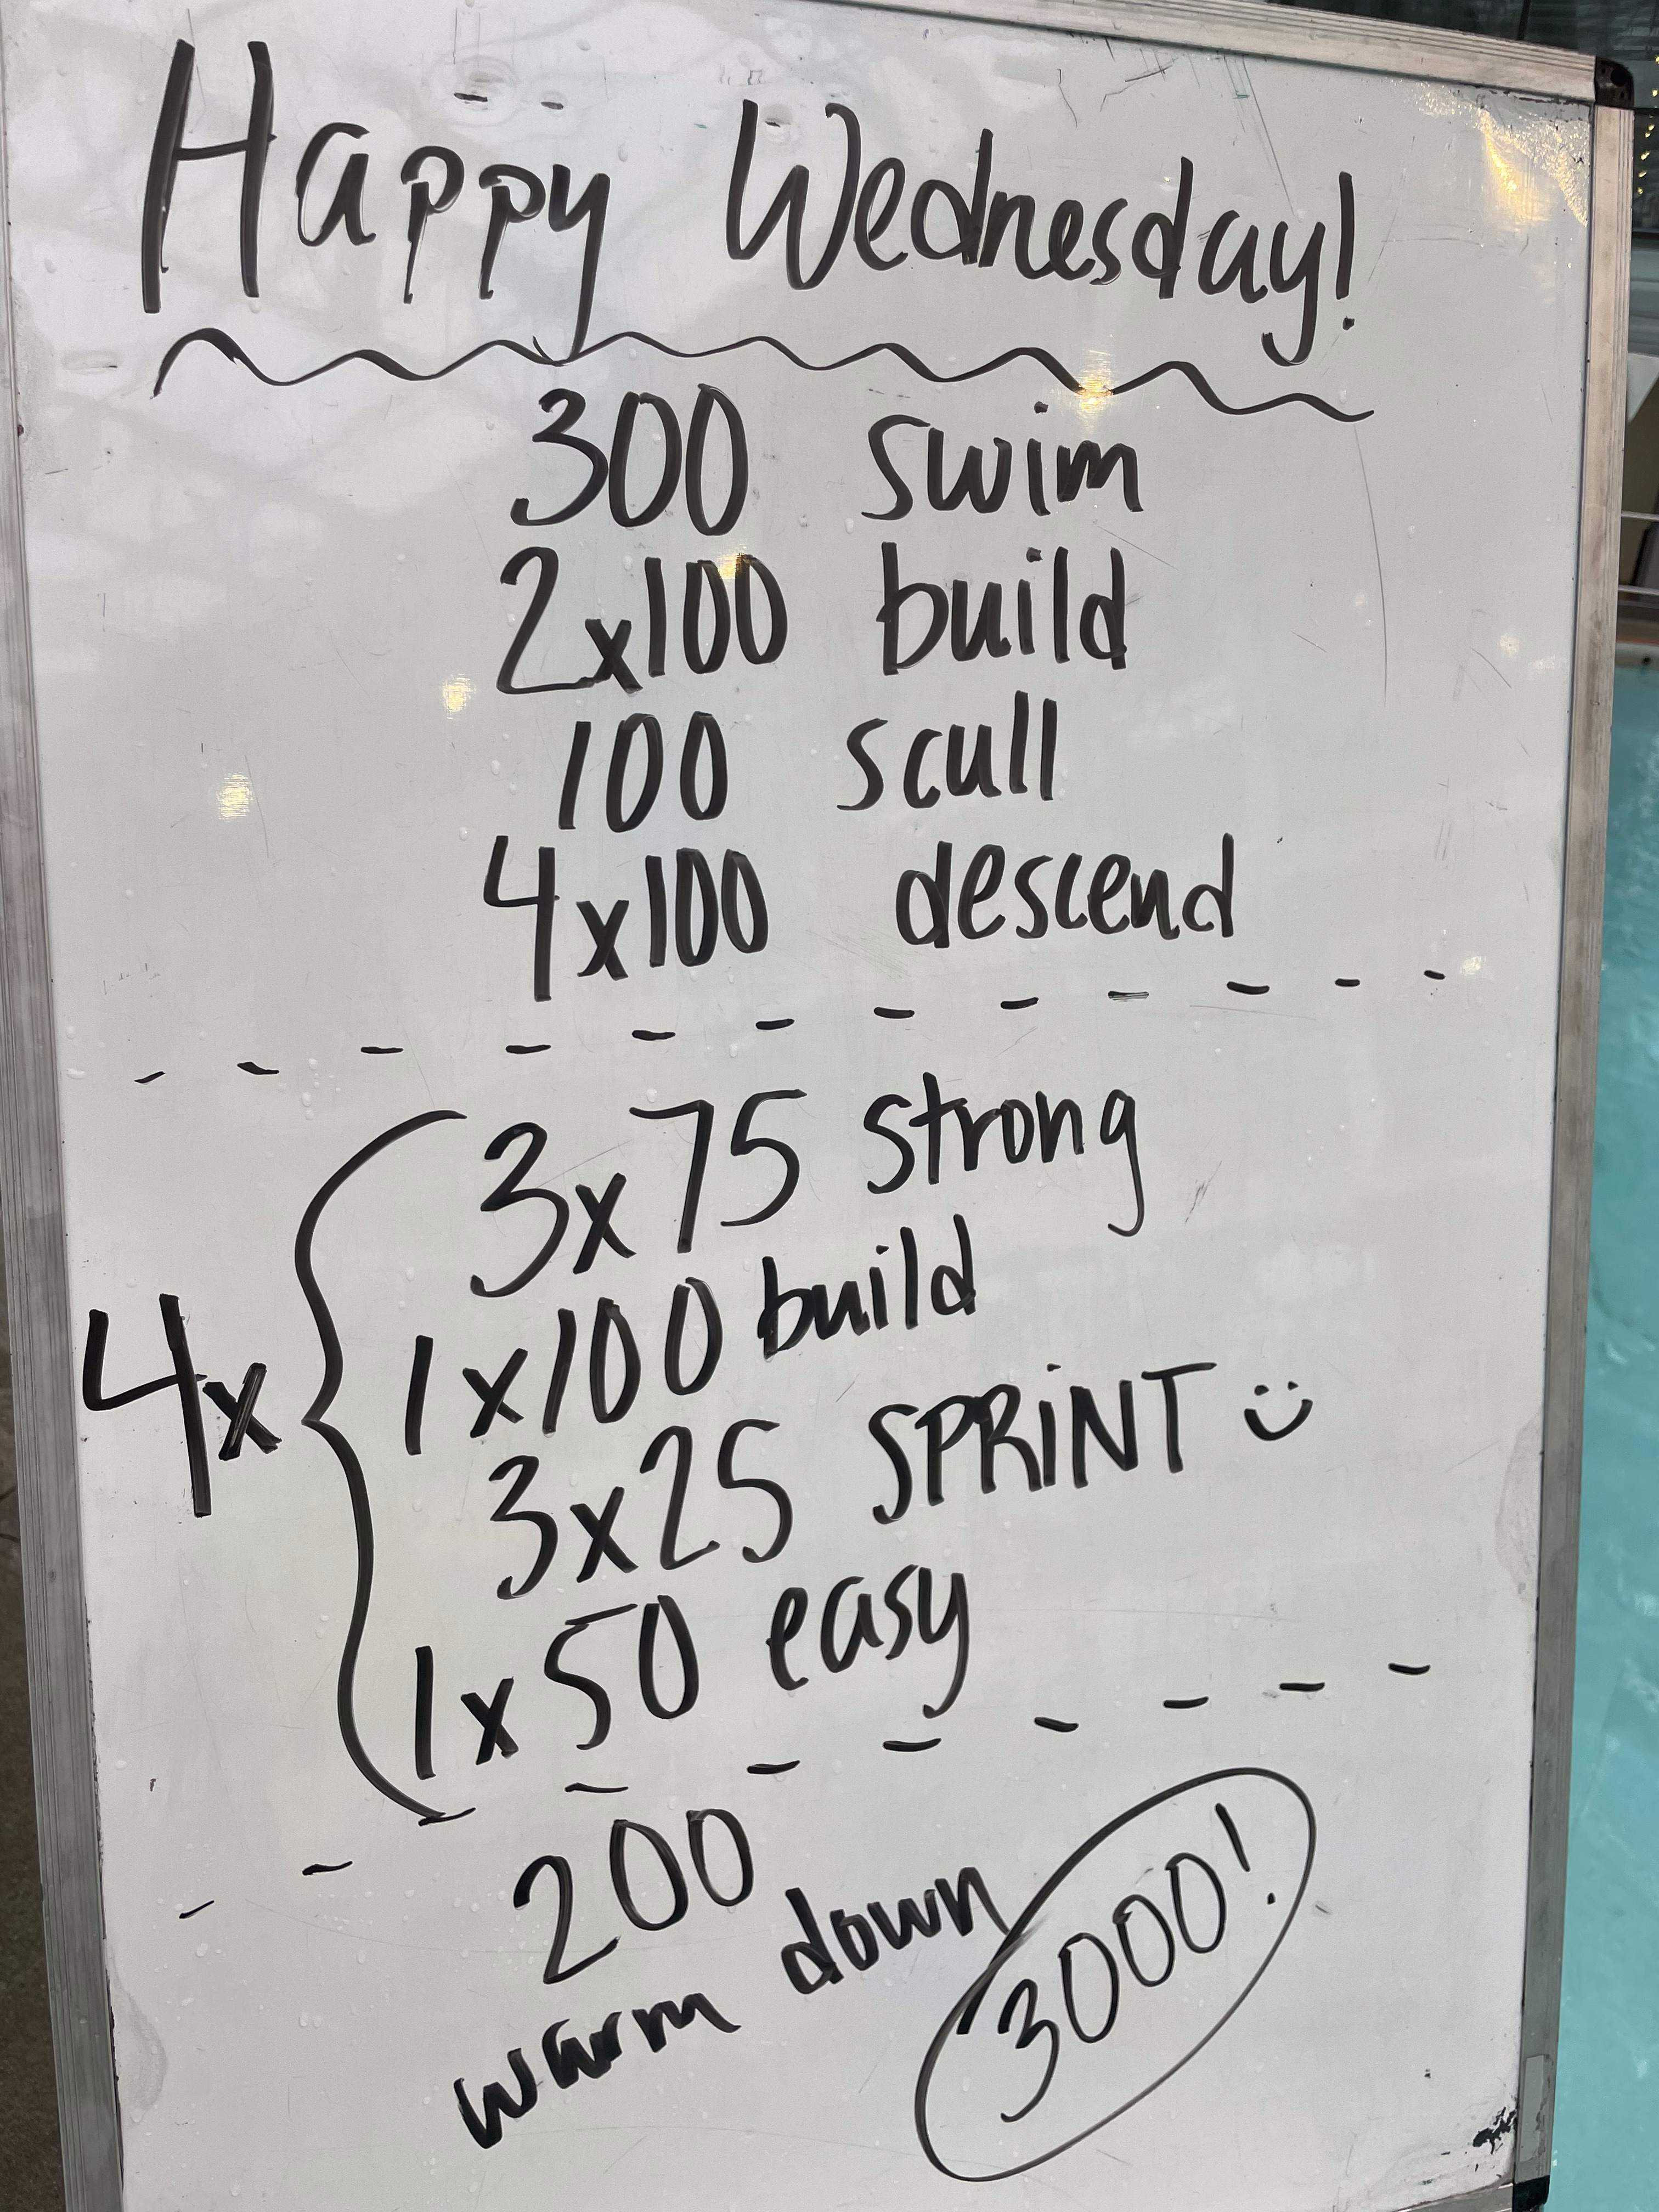 Happy Wednesday!
300 swim
2x100 build
100 scull
4x100 descend
4x
3x75 strong
1x100 build
3x25 SPRiNT
1x50 easy
200
warm down
3000!